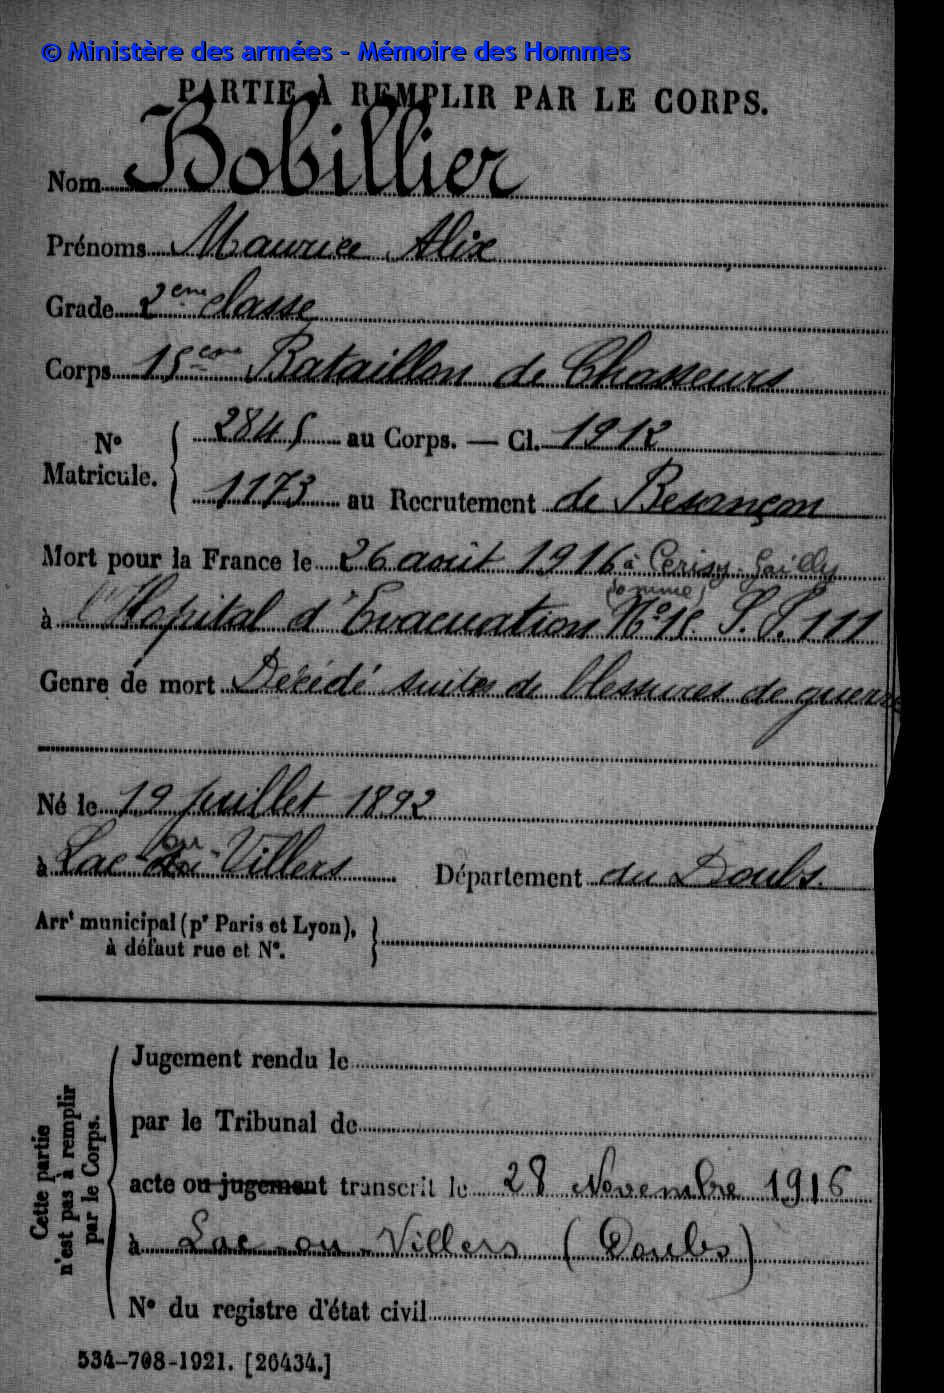 © Ministère des armées - Mémoire des Hommes
PARTIE À REMPLIR PAR LE CORPS.
Nom Bobillier
Prénoms Maurice Alix
Grade 2eme classe
Corps 15eme Bataillon de Chasseurs
N° Matricule. { 2845 au Corps. — Cl. 1912
1173 au Recrutement de Besançon
Mort pour la France le 26 août 1916 à Cerisy-Gailly
(Somme)
à l'Hopital d'Evacuation N° S. P. 111
Genre de mort Décédé suites de blessures de guerre
Né le 19 juillet 1892
à Lac-ou-Villers Département du Doubs.
Arrt municipal (pr Paris et Lyon), à défaut rue et N°. }
Cette partie n'est pas à remplir par le Corps.
Jugement rendu le
par le Tribunal de
acte ou jugement transcrit le 28 Novembre 1916
à Lac-ou-Villers (Doubs)
N° du registre d'état civil
534-708-1921. [26434.]